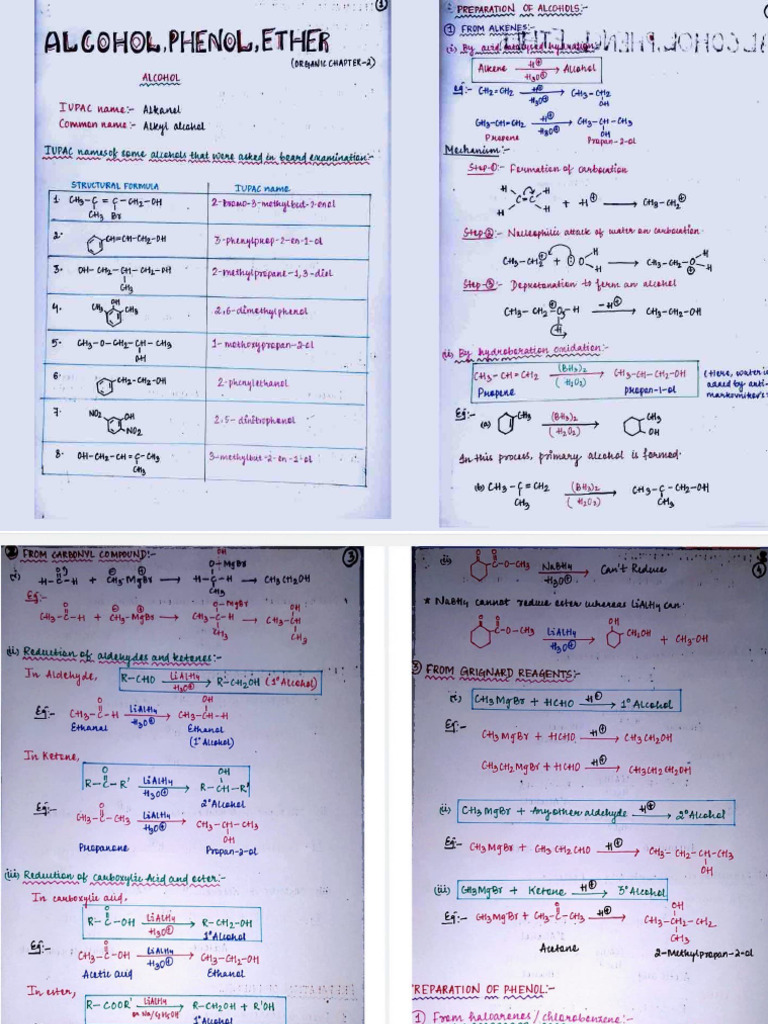 1
ALCOHOL, PHENOL, ETHER
(ORGANIC CHAPTER-2)
ALCOHOL
IUPAC name:- Alkanol
Common name:- Alkyl alcohol
IUPAC names of some alcohols that were asked in board examination:-
STRUCTURAL FORMULA IUPAC name
1. CH3-C=C-CH2-OH 2-bromo-3-methylbut-2-enol
CH3 Br
2. CH=CH-CH2-OH 3-phenylprop-2-en-1-ol
3. OH-CH2-CH-CH2-OH 2-methylpropane-1,3-diol
CH3
4. CH3 OH CH3 2,6-dimethylphenol
5. CH3-O-CH2-CH-CH3 1-methoxypropan-2-ol
OH
6. CH2-CH2-OH 2-phenylethanol
7. NO2 OH 2,5-dinitrophenol
NO2
8. OH-CH2-CH=C-CH3 3-methylbut-2-en-1-ol
CH3
PREPARATION OF ALCOHOLS:-
1 FROM ALKENES:-
(i) By acid catalysed hydration
Alkene H⊕ H3O⊕ Alcohol
Eg:- CH2=CH2 H⊕ H3O⊕ CH3-CH2
OH
CH3-CH=CH2 H⊕ H3O⊕ CH3-CH-CH3
OH
Propene Propan-2-ol
Mechanism:-
Step-1:- Formation of carbocation
H H C=C H H + H⊕ CH3-CH2⊕
Step-2:- Nucleophilic attack of water on carbocation
CH3-CH2⊕ + O H H CH3-CH2-O⊕ H H
Step-3:- Deprotonation to form an alcohol
CH3-CH2-O⊕-H -H⊕ CH3-CH2-OH
H
(ii) By hydroboration oxidation:-
CH3-CH=CH2 (BH3)2 (H2O2) CH3-CH-CH2-OH
Propene Propan-1-ol
(Here, water is
added by anti-
markovnikov's
Eg:-
(a) CH3 (BH3)2 (H2O2) CH3 OH
In this process, primary alcohol is formed.
(b) CH3-C=CH2 (BH3)2 (H2O2) CH3-C-CH2-OH
CH3 CH3
2 FROM CARBONYL COMPOUND:- 3
(i) H-C-H + CH3-MgBr H-C-H CH3CH2OH
O O-MgBr OH
CH3
Eg:-
CH3-C-H + CH3-MgBr CH3-C-H CH3-CH
O O-MgBr OH
CH3 CH3
(ii) Reduction of aldehydes and ketones:-
In Aldehyde, R-CHO LiAlH4 H3O⊕ R-CH2OH (1° Alcohol)
Eg:- CH3-C-H LiAlH4 H3O⊕ CH3-CH-H
O OH
Ethanal Ethanol
(1° Alcohol)
In Ketone,
R-C-R' LiAlH4 H3O⊕ R-CH-R'
O OH
2° Alcohol
Eg:- CH3-C-CH3 LiAlH4 H3O⊕ CH3-CH-CH3
O OH
Propanone Propan-2-ol
(iii) Reduction of carboxylic Acid and ester:-
In carboxylic acid,
R-C-OH LiAlH4 H3O⊕ R-CH2-OH
O 1° Alcohol
Eg:- CH3-C-OH LiAlH4 H3O⊕ CH3-CH2-OH
O
Acetic acid Ethanol
In ester,
R-COOR' LiAlH4 or Na/C2H5OH R-CH2OH + R'OH
1° Alcohol
4
O O C-O-CH3 NaBH4 H3O⊕ Can't Reduce
* NaBH4 cannot reduce ester whereas LiAlH4 can.
O O C-O-CH3 LiAlH4 H3O⊕ OH CH2OH + CH3-OH
3 FROM GRIGNARD REAGENTS:-
(i) CH3MgBr + HCHO H⊕ 1° Alcohol
Eg:-
CH3MgBr + HCHO H⊕ CH3CH2OH
CH3CH2MgBr + HCHO H⊕ CH3CH2CH2OH
(ii) CH3MgBr + Any other aldehyde H⊕ 2° Alcohol
Eg:- CH3MgBr + CH3CH2CHO H⊕ CH3-CH2-CH-CH3
OH
(iii) CH3MgBr + Ketone H⊕ 3° Alcohol
Eg:- CH3MgBr + CH3-C-CH3 H⊕ CH3-CH2-CH2
O OH
CH3
Acetone 2-Methylpropan-2-ol
REPARATION OF PHENOL:-
1) From haloarenes/chlorobenzene:-